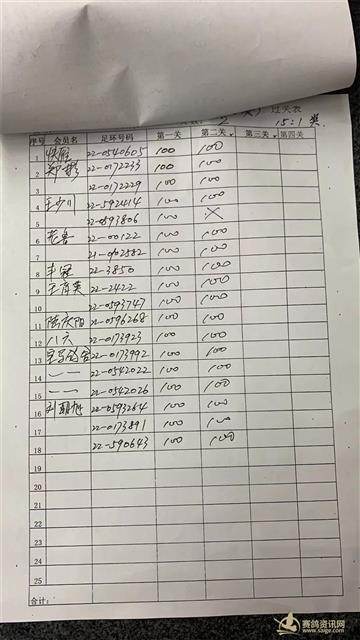 2 关) 过关表
15:1 奖
序号 会员名 足环号码 第一关 第二关 第三关 第四关
1 快ŕ 22-0540605 100 100
2 郑彬 22-0172233 100 100
3 22-0172229 100 100
4 王少川 22-592414 100 100
5 22-0593806 100 ×
6 22-00122 100 100
7 21-0402582 100 100
8 丰冠 22-3850 100 100
9 王育英 22-2422 100 100
10 22-0593747 100 100
11 陈庆阳 22-0596268 100 100
12 八六 22-0173923 100 100
13 22-0173992 100 100
14 一一 22-0542022 100 100
15 一一 22-0542026 100 100
16 刘朝旭 22-0593264 100 100
17 22-0173891 100 100
18 22-590643 100 100
19
20
21
22
23
24
25
合计:
赛鸽资讯网
www.saige.com